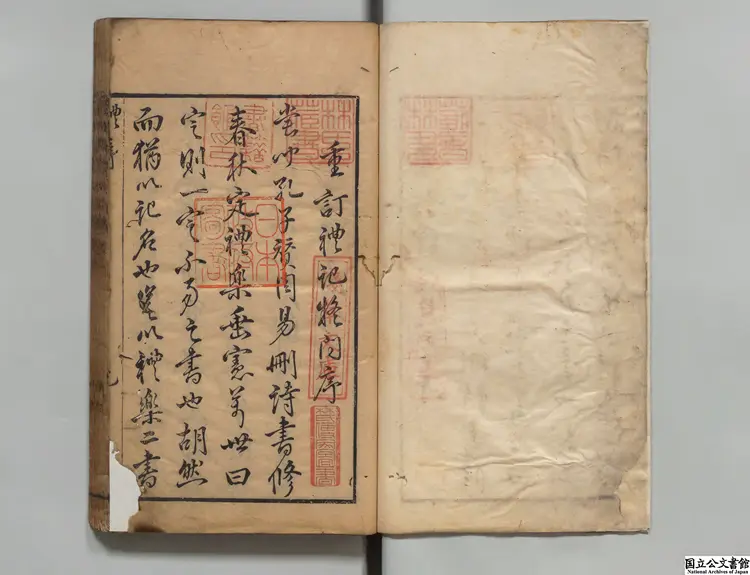 重訂禮記疑問序
嘗聞孔子贊周易刪詩書修
春秋定禮樂垂憲萬世曰
定則一定不易之書也胡然
而猶以記名也豈以禮樂二書
禮序
林氏藏書
日本政府圖書
国立公文書館
National Archives of Japan